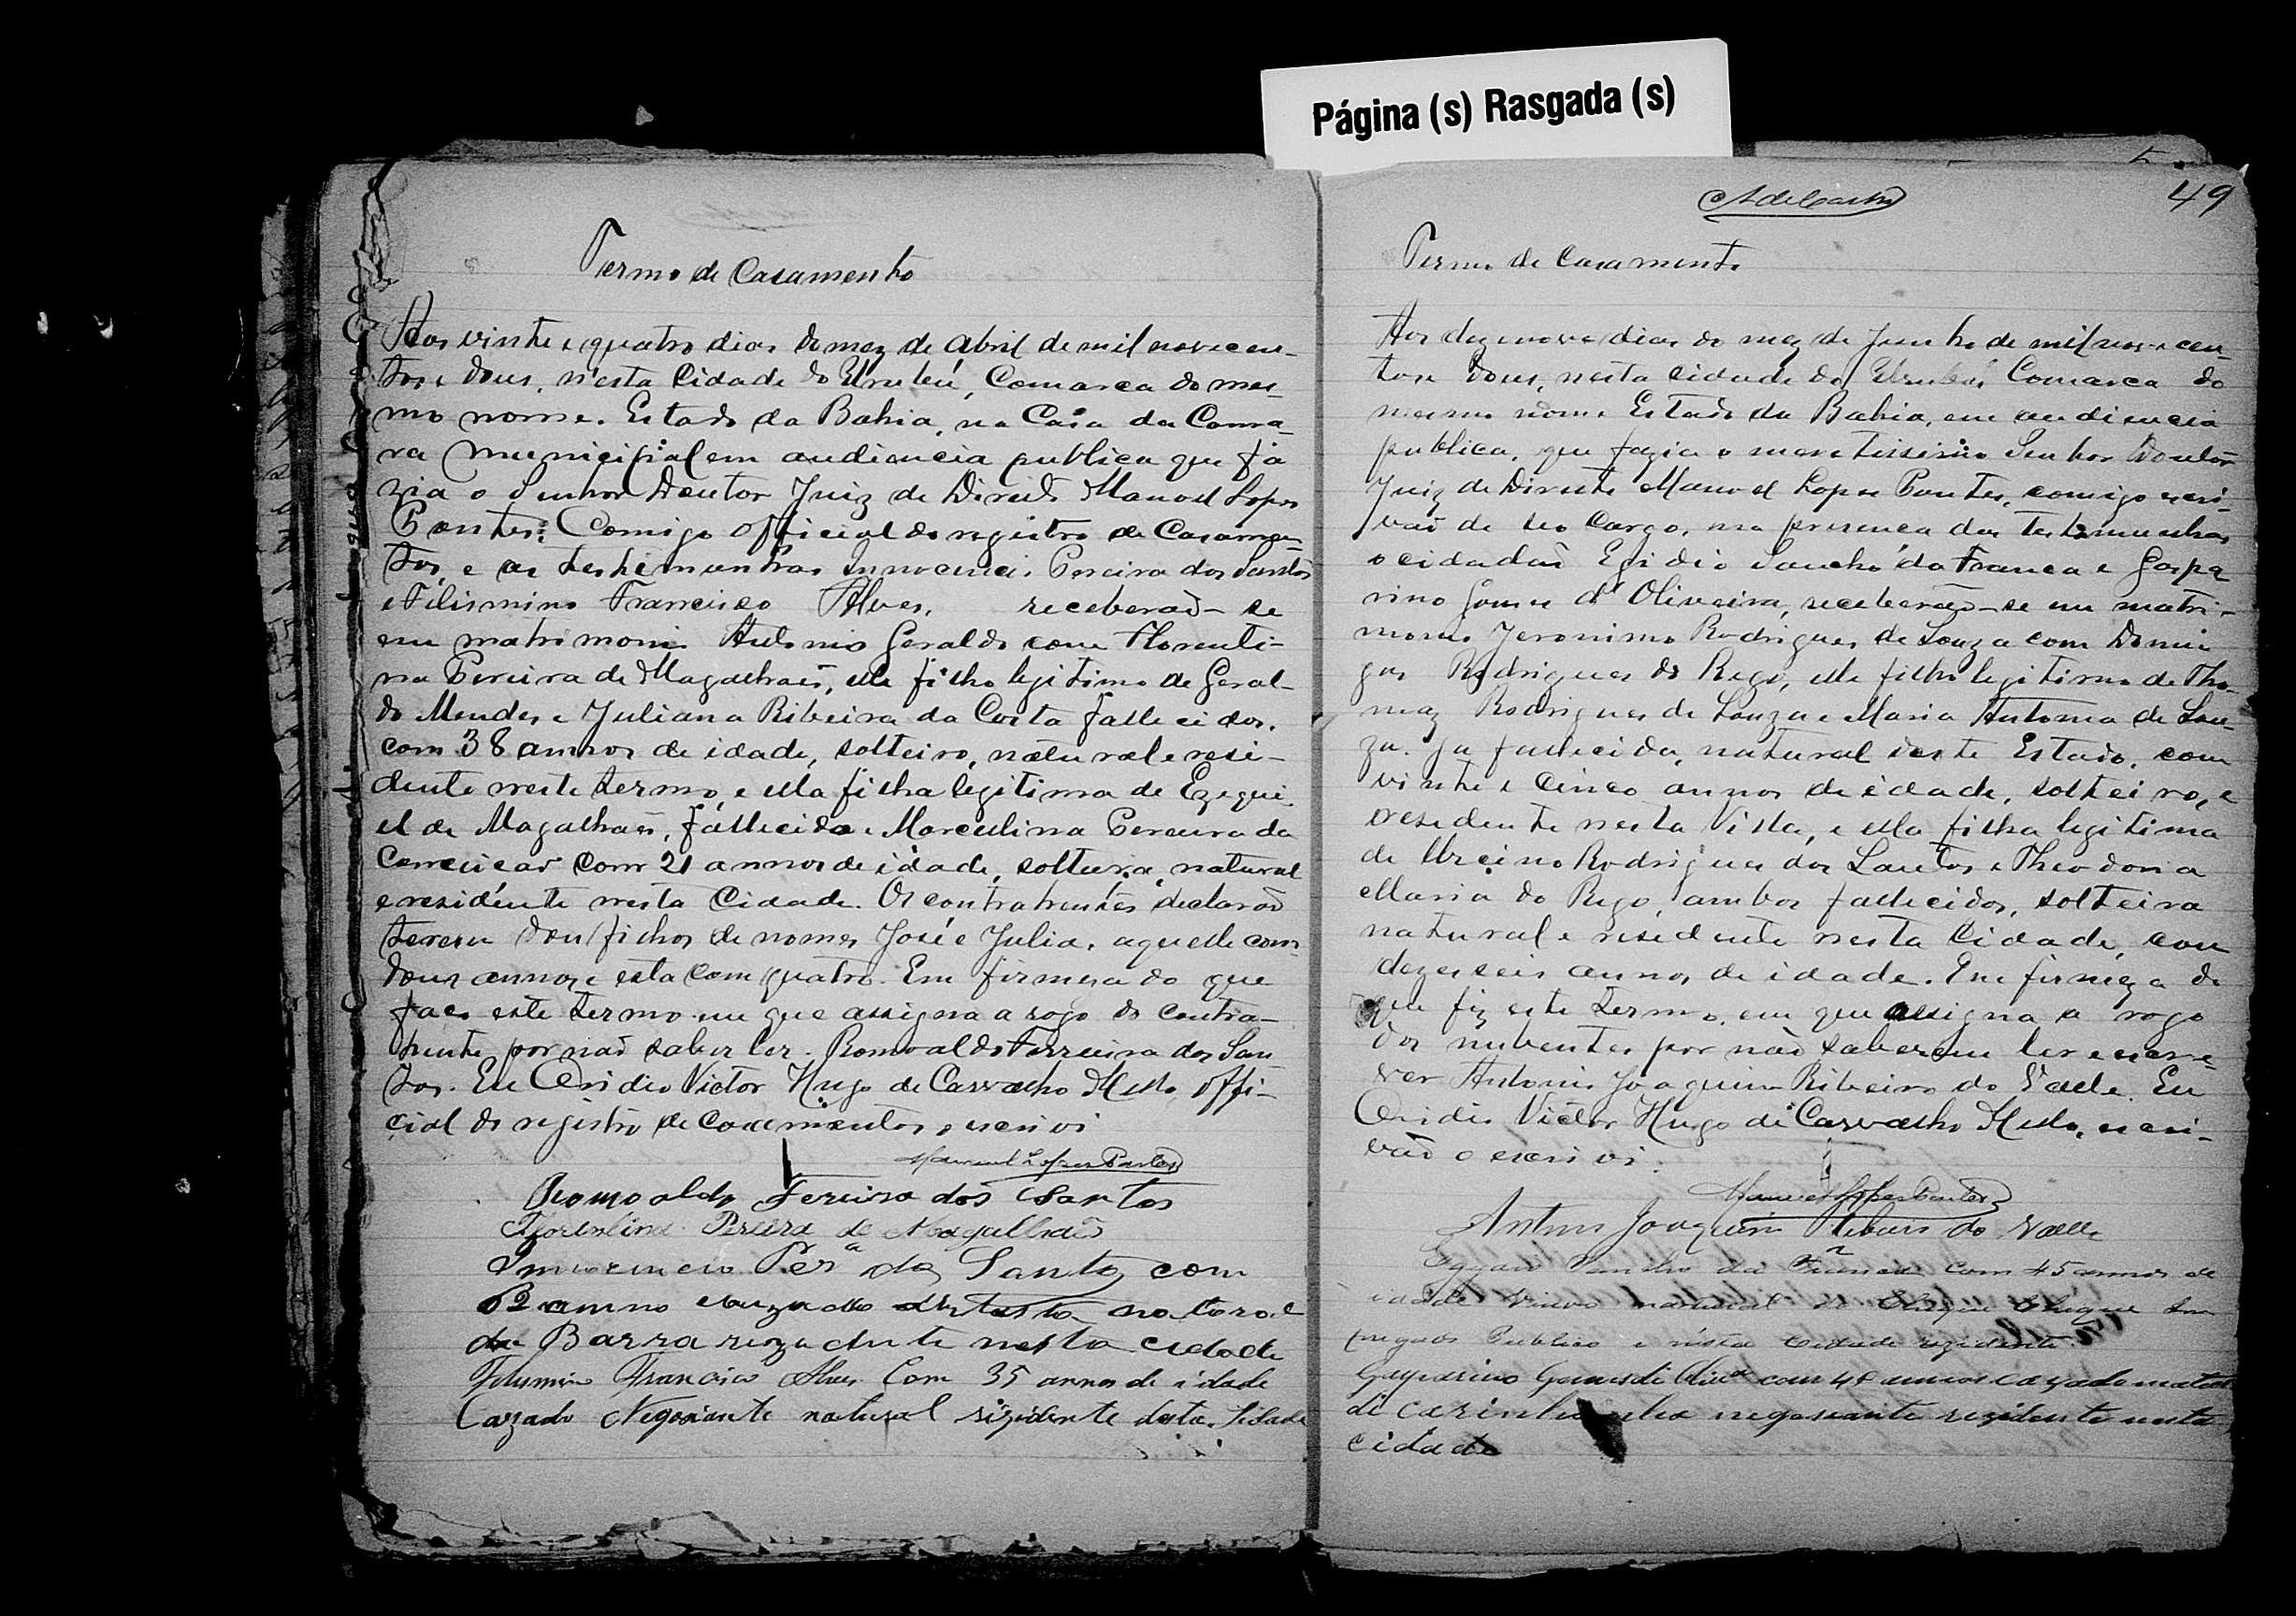 Página (s) Rasgada (s)
Termo de Casamento
Aos vinte e quatro dias do mez de Abril de mil novecen-
tos e dous, n'esta Cidade do Urubú, Comarca do mes-
mo nome. Estado da Bahia, na Casa da Cama-
ra Municipal em audiencia publica que fa
zia o Senhor Doutor Juiz de Direito Manoel Lopes
Pontes. Comigo official do registro de Casamen-
tos, e as testemunhas Innocencio Pereira dos Santos
e Filismino Francisco Alves, receberaõ-se
em matrimonio Antonio Geraldo com Florenti-
na Pereira de Magalhaẽs, elle filho legitimo de Geral-
do Mendes e Juliana Ribeira da Costa fallecidos.
com 38 annos de idade, solteiro, natural e resi-
dente neste termo, e ella filha legitima de Ezequi
el de Magalhaẽs, fallecido e Marculina Pereira da
Conceicaõ com 21 annos de idade, solteira, natural
e residente nesta Cidade. Os contrahentes declaraõ
terem dous filhos de nomes José e Julia, aquelle com
dous annos e esta com quatro. Em firmesa do que
faço este termo em que assigna a rogo do contra-
hente, por naõ saber ler. Romoaldo Ferreira dos San
tos. Eu Ovidio Victor Hugo de Carvalho Mello offi-
cial do registro de Casamentos, escrivi
Manoel Lopes Pontes
Romoaldo Fereira dos Santos
Florentina Pereira de Magalhães
Innocencio Perª dos Santos com
annos natural
da Barra rezidente nesta cidade
Filismino Francisco Alves Com 35 annos de idade
Cazado Negociante natural rizidente desta Cidade
49
Termo de Casamento
Aos dezenove dias do mez de Junho de mil novecen-
tos e dous, nesta cidade do Urubú Comarca do
mesmo nome Estado da Bahia, em audiencia
publica, que fazia o meretissimo Senhor Doutor
Juiz de Direito Manoel Lopes Pontes, comigo escri-
vaõ de seo cargo, na presença das testemunhas
o cidadaõ Egidio Sancho da Franca e Gaspa
rino Gomes d'Oliveira, receberaõ-se em matri-
monio Jeronimo Rodrigues de Souza com Domin
gas Rodrigues do Rego, elle filho legitimo de Tho-
maz Rodrigues de Souza e Maria Antonia de Sou-
za. ja fallecida, natural deste Estado, com
vinte e cinco annos de idade, solteiro, e
residente nesta Villa, e ella filha legitima
de Urcino Rodrigues dos Santos e Theodoria
Maria do Rego, ambos fallecidos, solteira
natural e residente nesta Cidade, com
dezeseis annos de idade. Em firmeza do
que fiz este termo, em que assigna a rogo
dos nubentes por naõ saberem ler e escre-
ver Antonio Joaquim Ribeiro do Valle. Eu
Ovidio Victor Hugo de Carvalho Mello, escri-
vaõ o escrivi.
Manoel Lopes Pontes
Antonio Joaquim Ribeiro do Valle
Sancho da Franca com 45 annos de
idade Viuvo natural de Chique Chique Em
pregado Publico e nésta Cidade rezidente.
Gasparino Gomes de Olivª com annos cazado natural
de carinhanha negociante rezidente nesta
cidade